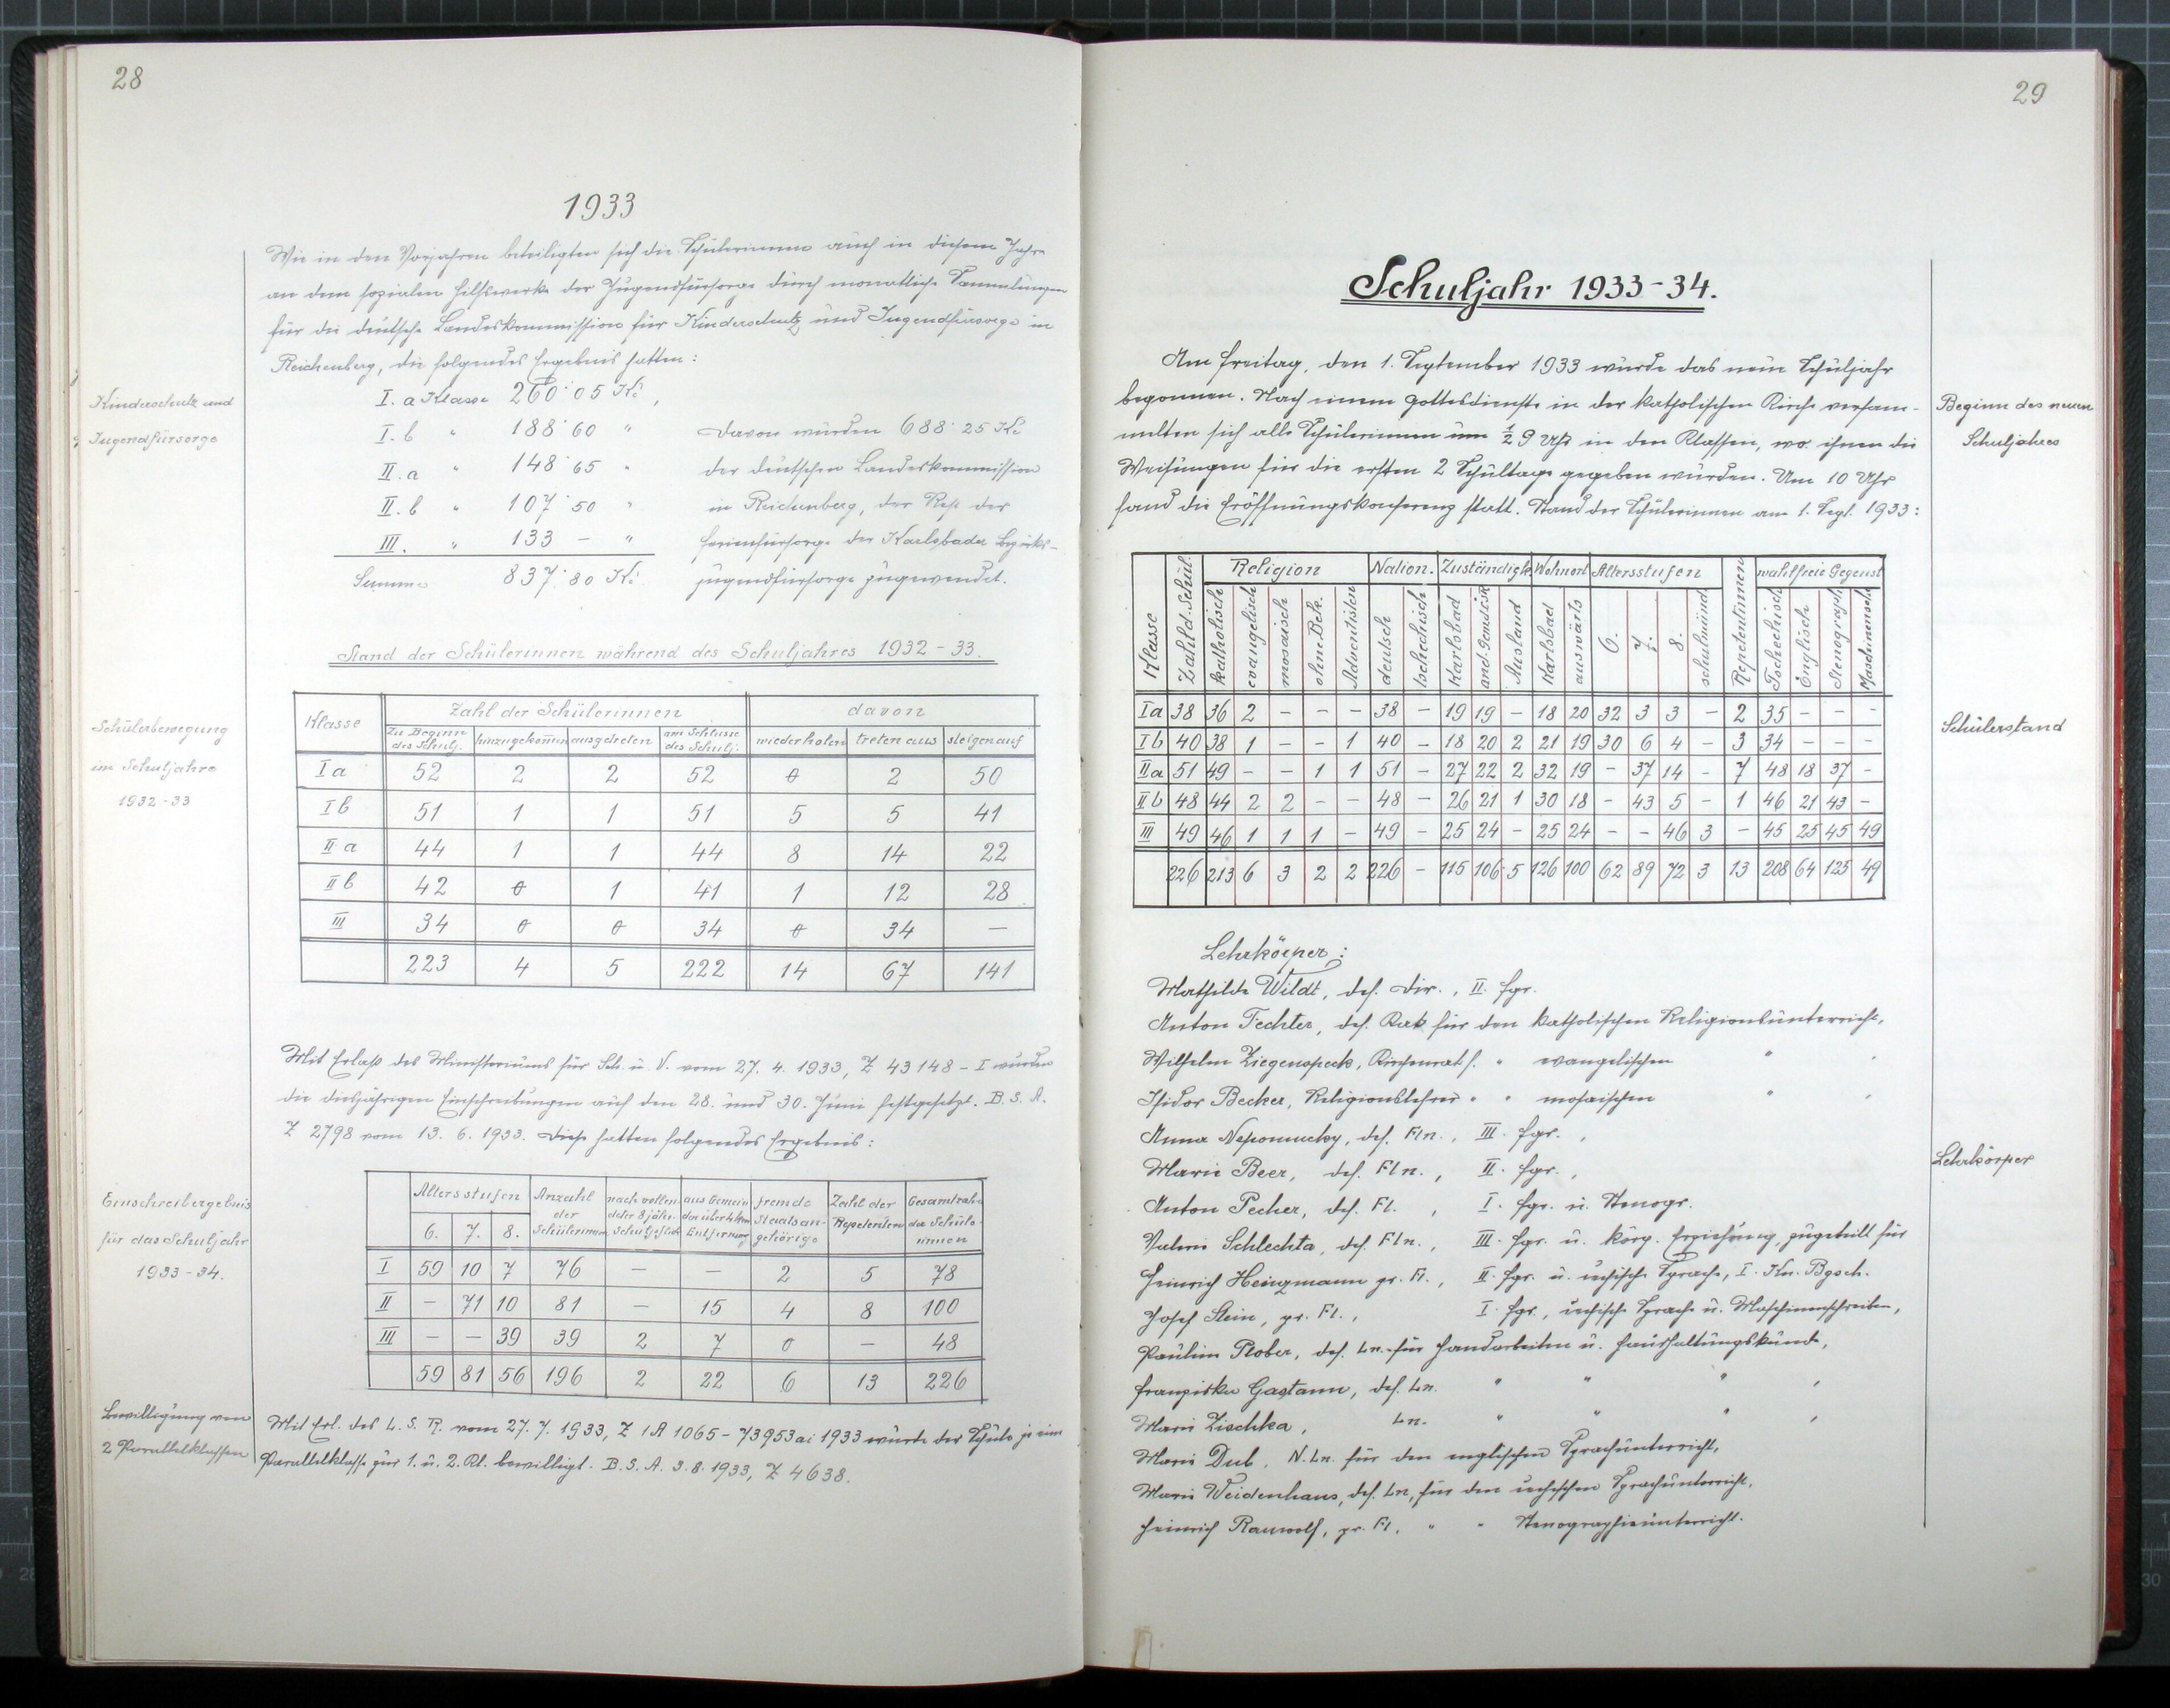 28
1933
Wie in den Vorjahren beteiligten sich die Schülerinnen auch in diesem Jahre
an dem sozialen Hilfswerke der Jugendfürsorge durch monatliche Sammlungen
für die deutsche Landeskommission für Kinderschutz und Jugendfürsorge in
Reichenberg, die folgendes Ergebnis hatten:
Kinderschutz und
Jugendfürsorge
I. a Klasse 260·05 Kč,
I. b " 188·60 " Davon wurden 688·25 Kč
II. a " 148·65 " der deutschen Landeskommission
II. b " 107·50 " in Reichenberg, der Rest der
III. " 133 – " Ferienfürsorge der Karlsbader Bezirks-
Summe 837·80 Kč. jugendfürsorge zugewendet.
Stand der Schülerinnen während des Schuljahres 1932-33.
Schülerbewegung
im Schuljahre
1932-33
Klasse Zahl der Schülerinnen davon
Zu Beginn des Schulj. hinzugekommen ausgetreten am Schlusse des Schulj. wiederholen treten aus steigen auf
I a 52 2 2 52 0 2 50
I b 51 1 1 51 5 5 41
II a 44 1 1 44 8 14 22
II b 42 0 1 41 1 12 28
III 34 0 0 34 0 34 —
223 4 5 222 14 67 141
Mit Erlaß des Ministeriums für Sch. u. V. vom 27. 4. 1933, Z 43148 – I wurden
die diesjährigen Einschreibungen auf den 28. und 30. Juni festgesetzt. B. S. A.
Z 2798 vom 13. 6. 1933. Diese hatten folgendes Ergebnis:
Einschreibergebnis
für das Schuljahr
1933-34.
Altersstufen Anzahl der Schülerinnen nach vollendeter 8 jähr. Schulpflicht aus Gemeinden über 4 km Entfernung fremde Staatsangehörige Zahl der Repetenten Gesamtzahl der Schülerinnen
6. 7. 8.
I 59 10 7 76 — — 2 5 78
II — 71 10 81 — 15 4 8 100
III — — 39 39 2 7 0 — 48
59 81 56 196 2 22 6 13 226
Bewilligung von
2 Parallelklassen
Mit Erl. des L. S. R. vom 27. 7. 1933, Z IA 1065 – 73953 ai 1933 wurde der Schule je eine
Parallelklasse zur 1. u. 2. Kl. bewilligt. B. S. A. 3. 8. 1933, Z 4638.
29
Schuljahr 1933-34.
Am Freitag, den 1. September 1933 wurde das neue Schuljahr
begonnen. Nach einem Gottesdienste in der katholischen Kirche versam-
melten sich alle Schülerinnen um ½ 9 Uhr in den Klassen, wo ihnen die
Weisungen für die ersten 2 Schultage gegeben wurden. Um 10 Uhr
fand die Eröffnungskonferenz statt. Stand der Schülerinnen am 1. Sept. 1933:
Beginn des neuen
Schuljahres
Klasse Zahl d. Schül. Religion Nation. Zuständigk. Wohnort Altersstufen Repetentinnen wahlfreie Gegenst.
katholisch evangelisch mosaisch ohne Bek. Adventisten deutsch tschechisch Karlsbad and. Gem. i. ČSR Ausland Karlsbad auswärts 6. 7. 8. schulmünd. Tschechisch Englisch Stenograph. Maschinensch.
I a 38 36 2 – – – 38 – 19 19 – 18 20 32 3 3 – 2 35 – – –
I b 40 38 1 – – 1 40 – 18 20 2 21 19 30 6 4 – 3 34 – – –
II a 51 49 – – 1 1 51 – 27 22 2 32 19 – 37 14 – 7 48 18 37 –
II b 48 44 2 2 – – 48 – 26 21 1 30 18 – 43 5 – 1 46 21 43 –
III 49 46 1 1 1 – 49 – 25 24 – 25 24 – – 46 3 – 45 25 45 49
226 213 6 3 2 2 226 – 115 106 5 126 100 62 89 72 3 13 208 64 125 49
Schülerstand
Lehrkörper:
Mathilde Wildt, def. Dir., II. Fgr.
Anton Fechter, def. Kat. für den katholischen Religionsunterricht,
Wilhelm Ziegenspeck, Kirchenrat f. " evangelischen " ,
Isidor Becker, Religionslehrer " " mosaischen " ,
Anna Nepomucky, def. Fln., III. Fgr.,
Marie Beer, def. Fln., II. Fgr.,
Anton Pecher, def. Fl., I. Fgr. u. Stenogr.
Valerie Schlechta, def. Fln., III. Fgr. u. körp. Erziehung, zugeteilt für
Heinrich Heinzmann pr. Fl., II. Fgr. u. čechische Sprache, I. Kn. Bgsch.
Josef Stein, pr. Fl., I. Fgr., čechische Sprache u. Maschinenschreiben,
Pauline Plober, def. Ln. für Handarbeiten u. Haushaltungskunde,
Franziska Gastann, def. Ln. " " " ,
Marie Zischka, Ln. " " " ,
Marie Dub, N. Ln. für den englischen Sprachunterricht,
Marie Weidenhaus, def. Ln, für den čechischen Sprachunterricht,
Heinrich Rauwolf, pr. Fl. " " Stenographieunterricht.
Lehrkörper